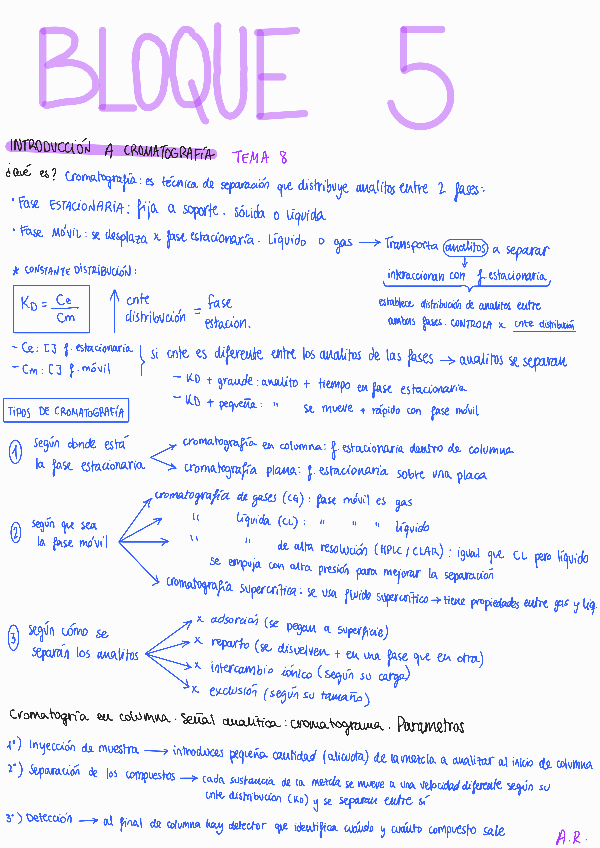 BLOQUE 5
INTRODUCCIÓN A CROMATOGRAFÍA TEMA 8
¿Qué es? Cromatografía: es técnica de separación que distribuye analitos entre 2 fases:
· Fase ESTACIONARIA: fija a soporte. sólida o líquida
· Fase MÓVIL: se desplaza x fase estacionaria. Líquido o gas → Transporta analitos a separar
interaccionan con f. estacionaria
establece distribución de analitos entre
ambas fases. CONTROLA x cnte distribución
* CONSTANTE DISTRIBUCIÓN:
KD = Ce / Cm ↑ cnte distribución = fase estacion.
- Ce: [] f. estacionaria
- Cm: [] f. móvil
si cnte es diferente entre los analitos de las fases → analitos se separan
- KD + grande: analito + tiempo en fase estacionaria
- KD + pequeña: " se mueve + rápido con fase móvil
TIPOS DE CROMATOGRAFÍA
① según donde está
la fase estacionaria
→ cromatografía en columna: f. estacionaria dentro de columna
→ cromatografía plana: f. estacionaria sobre una placa
② según que sea
la fase móvil
cromatografía de gases (CG): fase móvil es gas
" líquida (CL): " " " líquido
" " de alta resolución (HPLC / CLAR): igual que CL pero líquido
se empuja con alta presión para mejorar la separación
cromatografía supercrítica: se usa fluido supercrítico → tiene propiedades entre gas y líq.
③ según cómo se
separan los analitos
x adsorción (se pegan a superficie)
x reparto (se disuelven + en una fase que en otra)
x intercambio iónico (según su carga)
x exclusión (según su tamaño)
Cromatogría en columna. Señal analítica: cromatograma. Parametros
1º) Inyección de muestra → introduces pequeña cantidad (alícuota) de la mezcla a analizar al inicio de columna
2º) Separación de los compuestos → cada sustancia de la mezcla se mueve a una velocidad diferente según su
cnte distribución (KD) y se separan entre sí
3º) Detección → al final de columna hay detector que identifica cuándo y cuánto compuesto sale
A.R.